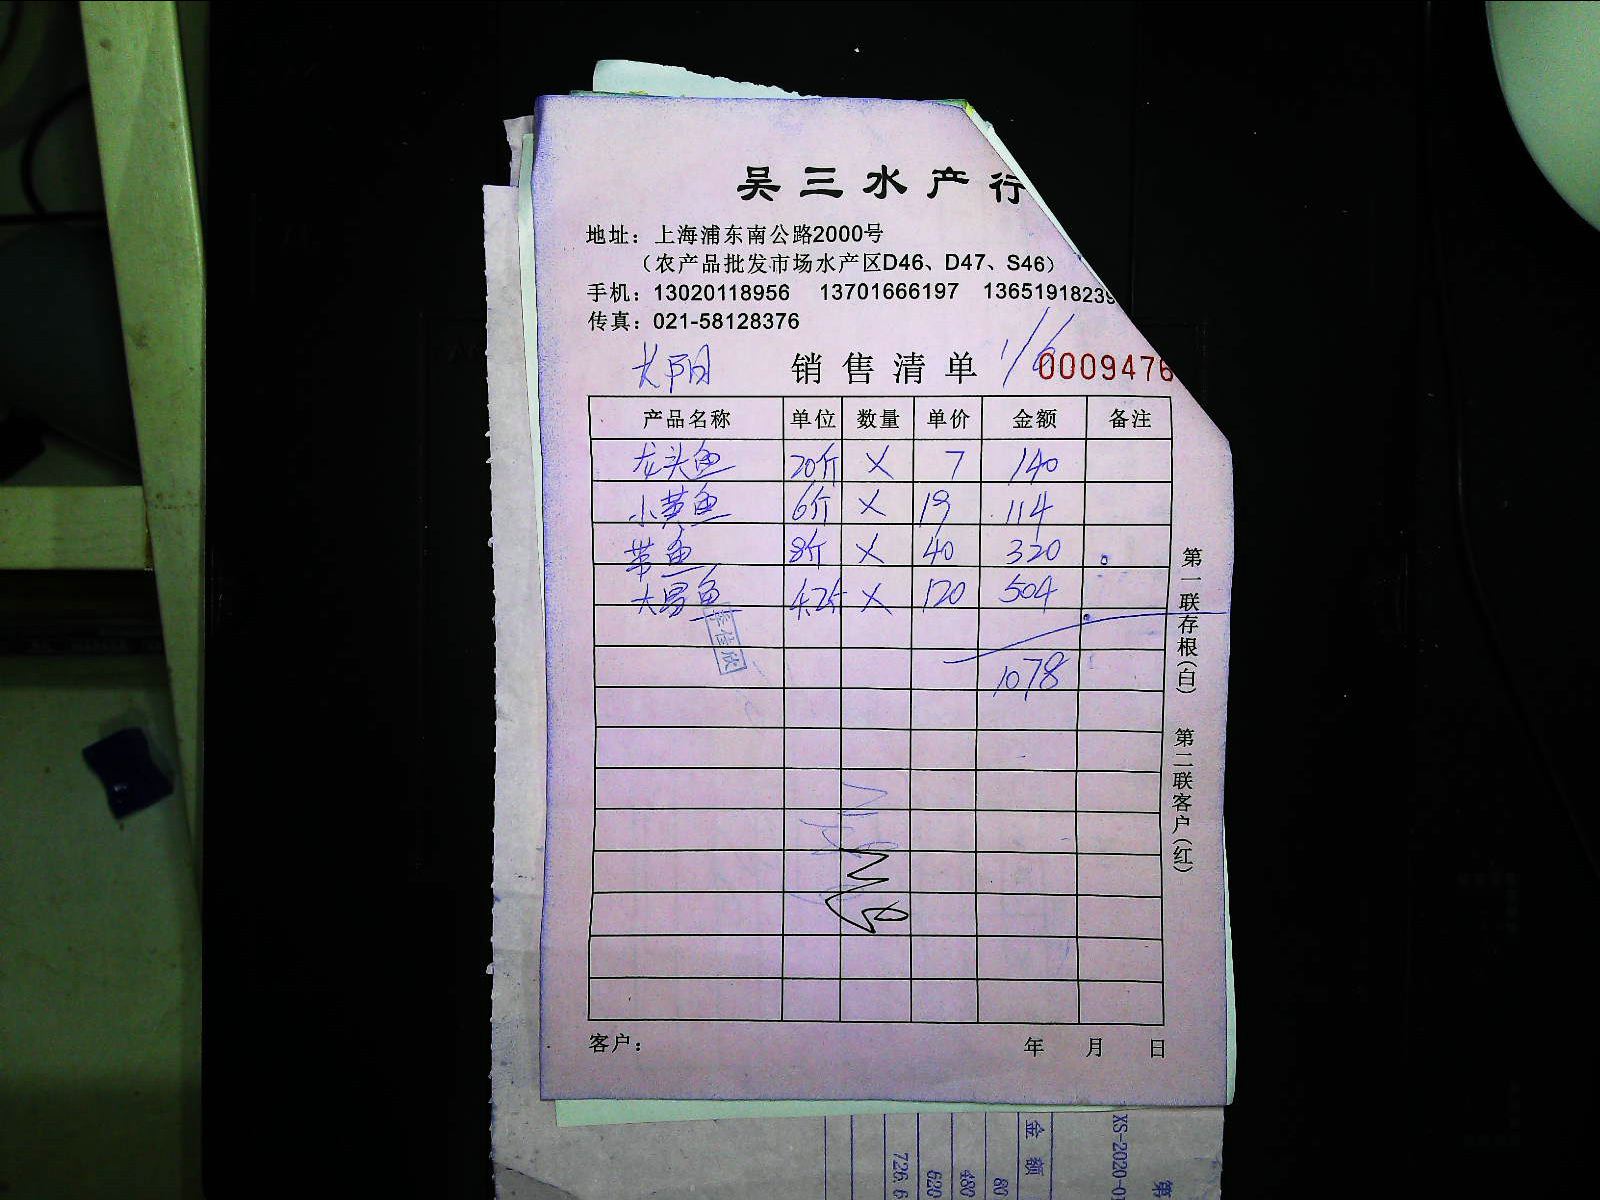 吴三水产行
地址：上海浦东南公路2000号
（农产品批发市场水产区D46、D47、S46）
手机：13020118956 13701666197 13651918239
传真：021-58128376
销售清单 1/6 0009476
产品名称 单位 数量 单价 金额 备注
龙头鱼 20斤 X 7 140
小黄鱼 6斤 X 19 114
带鱼 8斤 X 40 320
大昌鱼 4.2斤 X 120 504
李佳欣
1078
第一联存根（白） 第二联客户（红）
客户： 年 月 日
金额
80
480
620
726.6
XS-2020-0
第